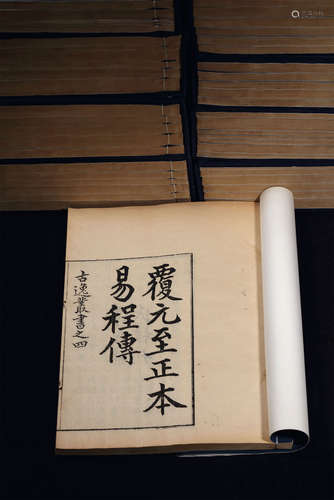 覆元至正本
易程傳
古逸叢書之四